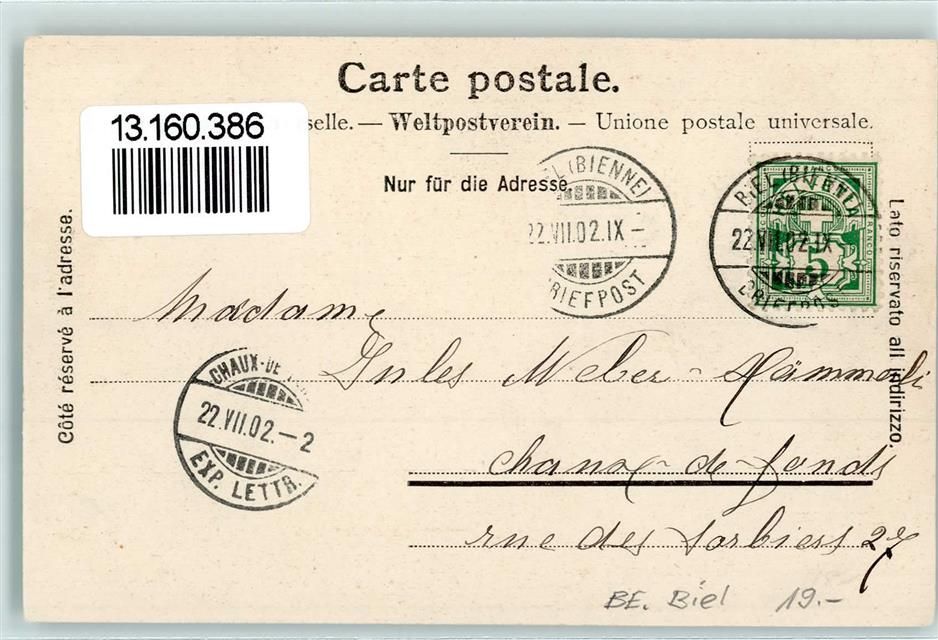 Carte postale.
13.160.386
selle. — Weltpostverein. — Unione postale universale.
Nur für die Adresse.
(BIENNE)
22.VII.02.IX –
BRIEFPOST
BIEL (BIENNE)
22.VII.02.IX
BRIEFPOST
HELVETIA
FRANCO
5
Côté réservé à l'adresse.
Lato riservato all indirizzo.
Madame
Jules Weber-Hämmerli
CHAUX-DE
22.VII.02.–2
EXP. LETTR.
Chaux-de-fonds
rue des Sorbiers 27
BE. Biel 19.-